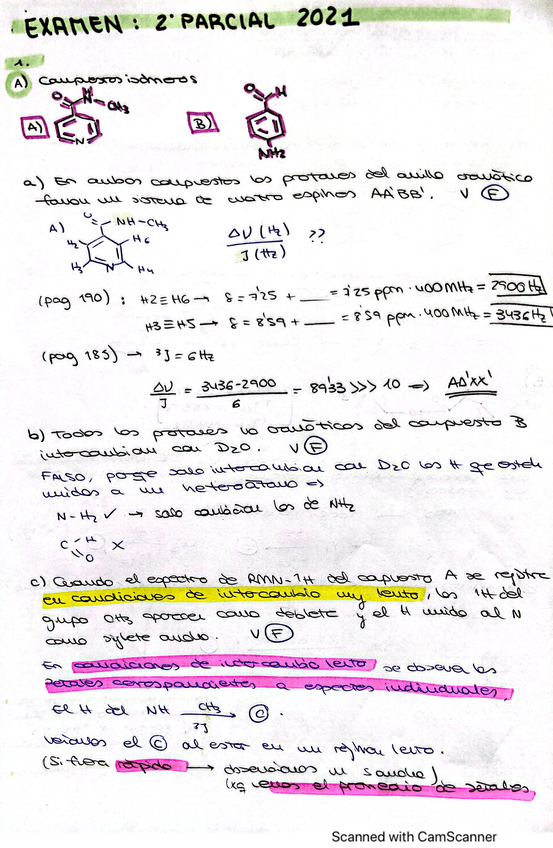 EXAMEN: 2º PARCIAL 2021
1.
A) Compuestos isómeros
A) O H N-CH3 N
B) O H NH2
a) En ambos compuestos los protones del anillo aromático
forman un sistema de cuatro espines AA'BB'. V F
A) O NH-CH3 H2 H6 H3 N H4
ΔU (Hz) / J (Hz) ??
(pag 190) : H2≡H6 → δ = 7'25 + __ = 7'25 ppm · 400MHz = 2900Hz
H3≡H5 → δ = 8'59 + __ = 8'59 ppm · 400MHz = 3436Hz
(pag 185) → ³J = 6Hz
ΔU / J = 3436-2900 / 6 = 89'33 >>> 10 => AA'XX'
b) Todos los protones no aromáticos del compuesto B
intercambian con D2O. V F
FALSO, porque solo intercambian con D2O los H que estén
unidos a un heteroátomo =>
N-H2 ✓ → solo cambian los de NH2
C H O X
c) Cuando el espectro de RMN-¹H del compuesto A se registre
en condiciones de intercambio muy lento, los ¹H del
grupo CH3 aparecen como doblete y el H unido al N
como singlete ancho. V F
En condiciones de intercambio lento se observa las
señales correspondientes a especies individuales.
El H del NH CH3 → ³J C.
veríamos el C al estar en un régimen lento.
(Si fuera rápido → observaríamos un s ancho)
(xq vemos el promedio de señales
Scanned with CamScanner